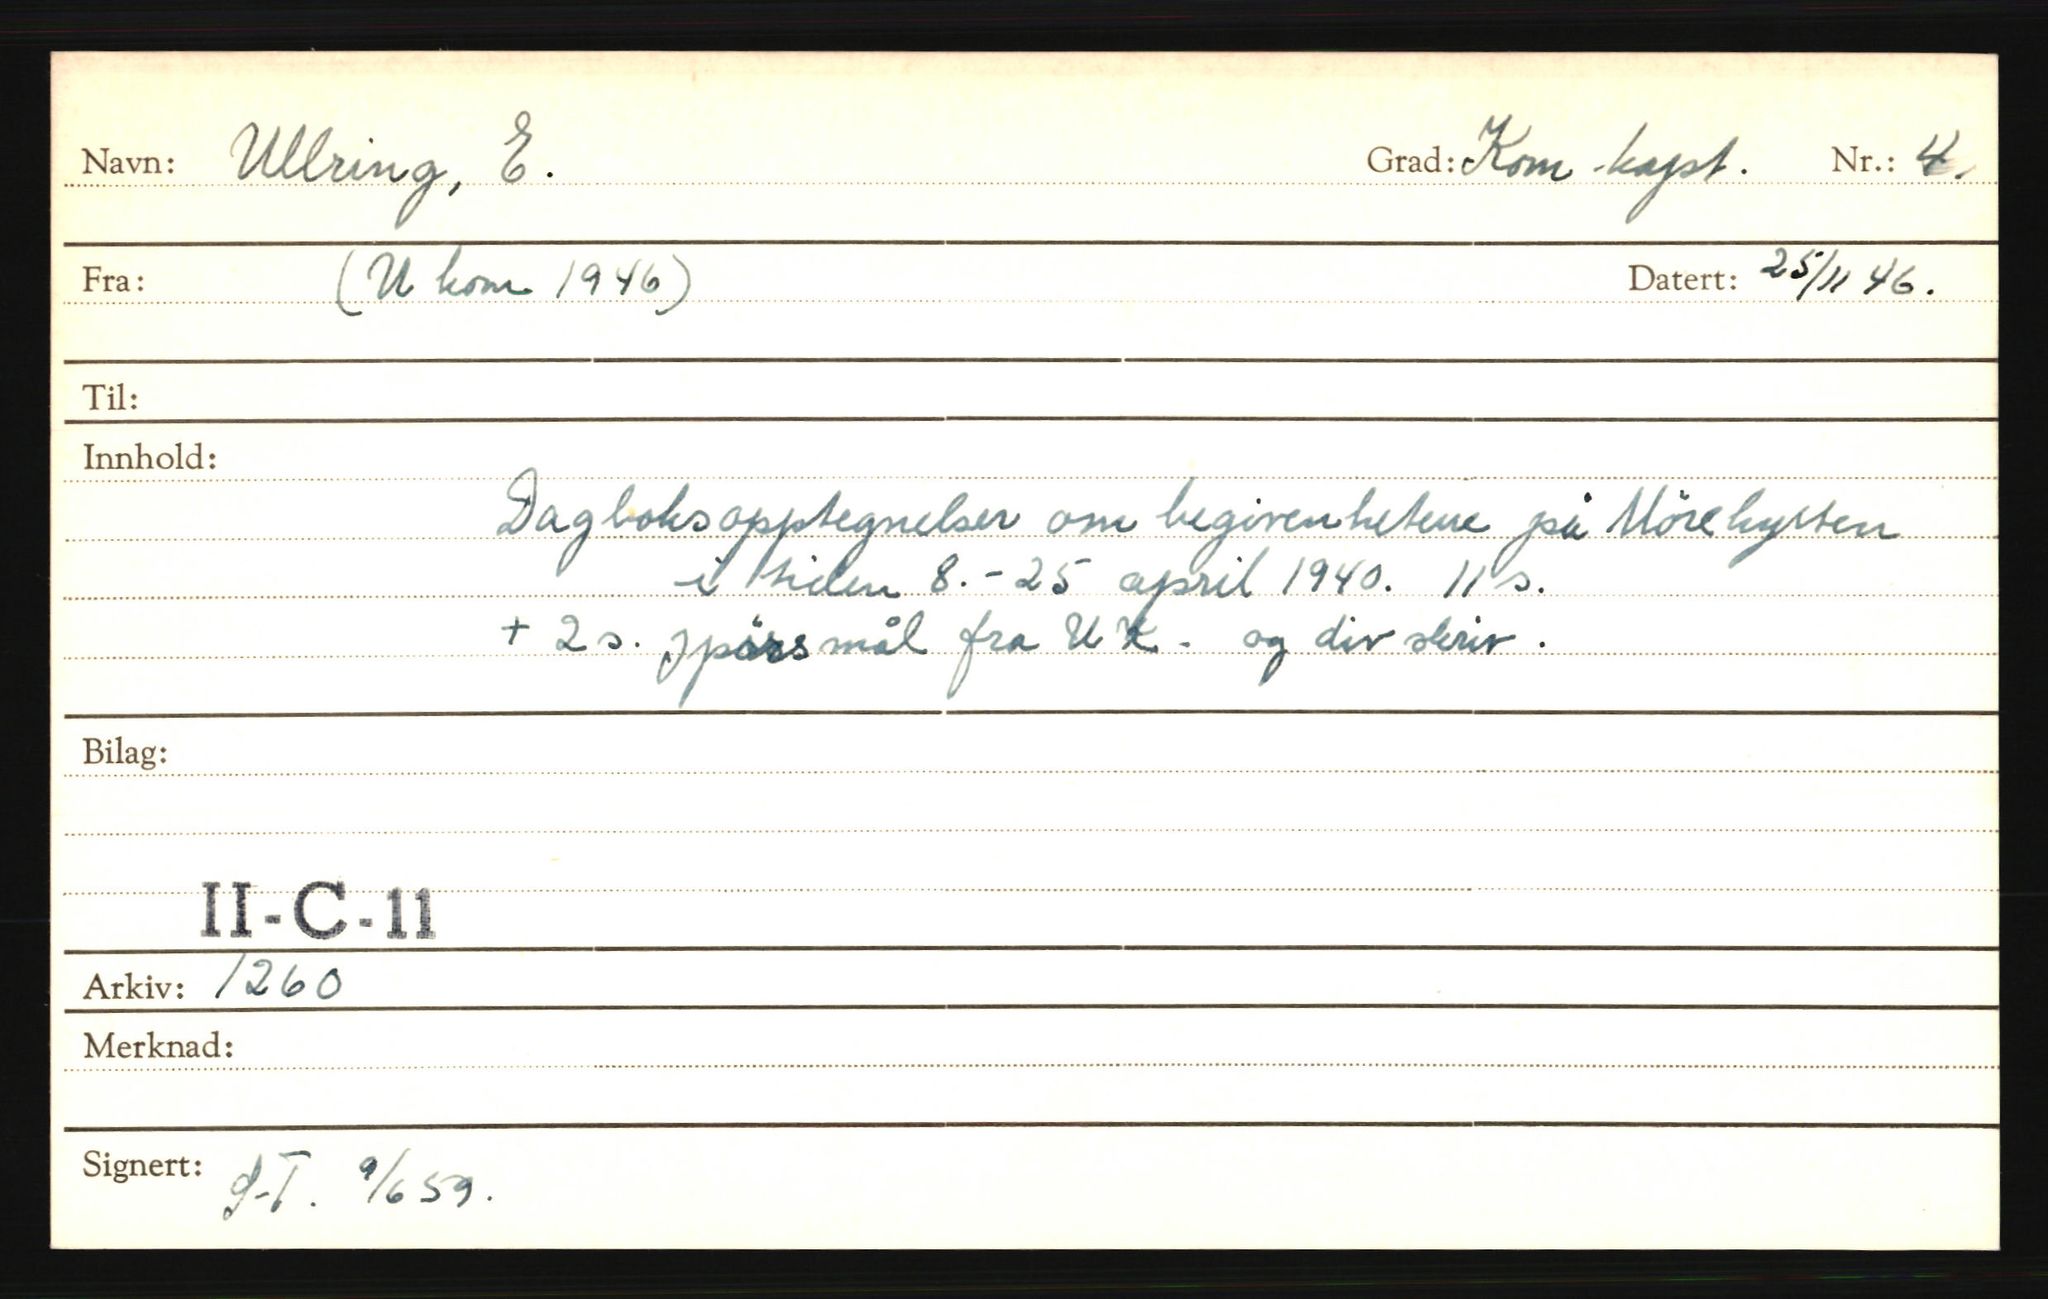 Navn: Ullring, E. Grad: Kom.kapt. Nr.: 4.
Fra: (U kom 1946) Datert: 25/11 46.
Til:
Innhold:
Dagboksopptegnelser om begivenhetene på Mörekysten
i tiden 8.-25 april 1940. 11 s.
+ 2 s. spörsmål fra UK. og div skriv.
Bilag:
II-C-11
Arkiv: 1260
Merknad:
Signert: 9/6 59.